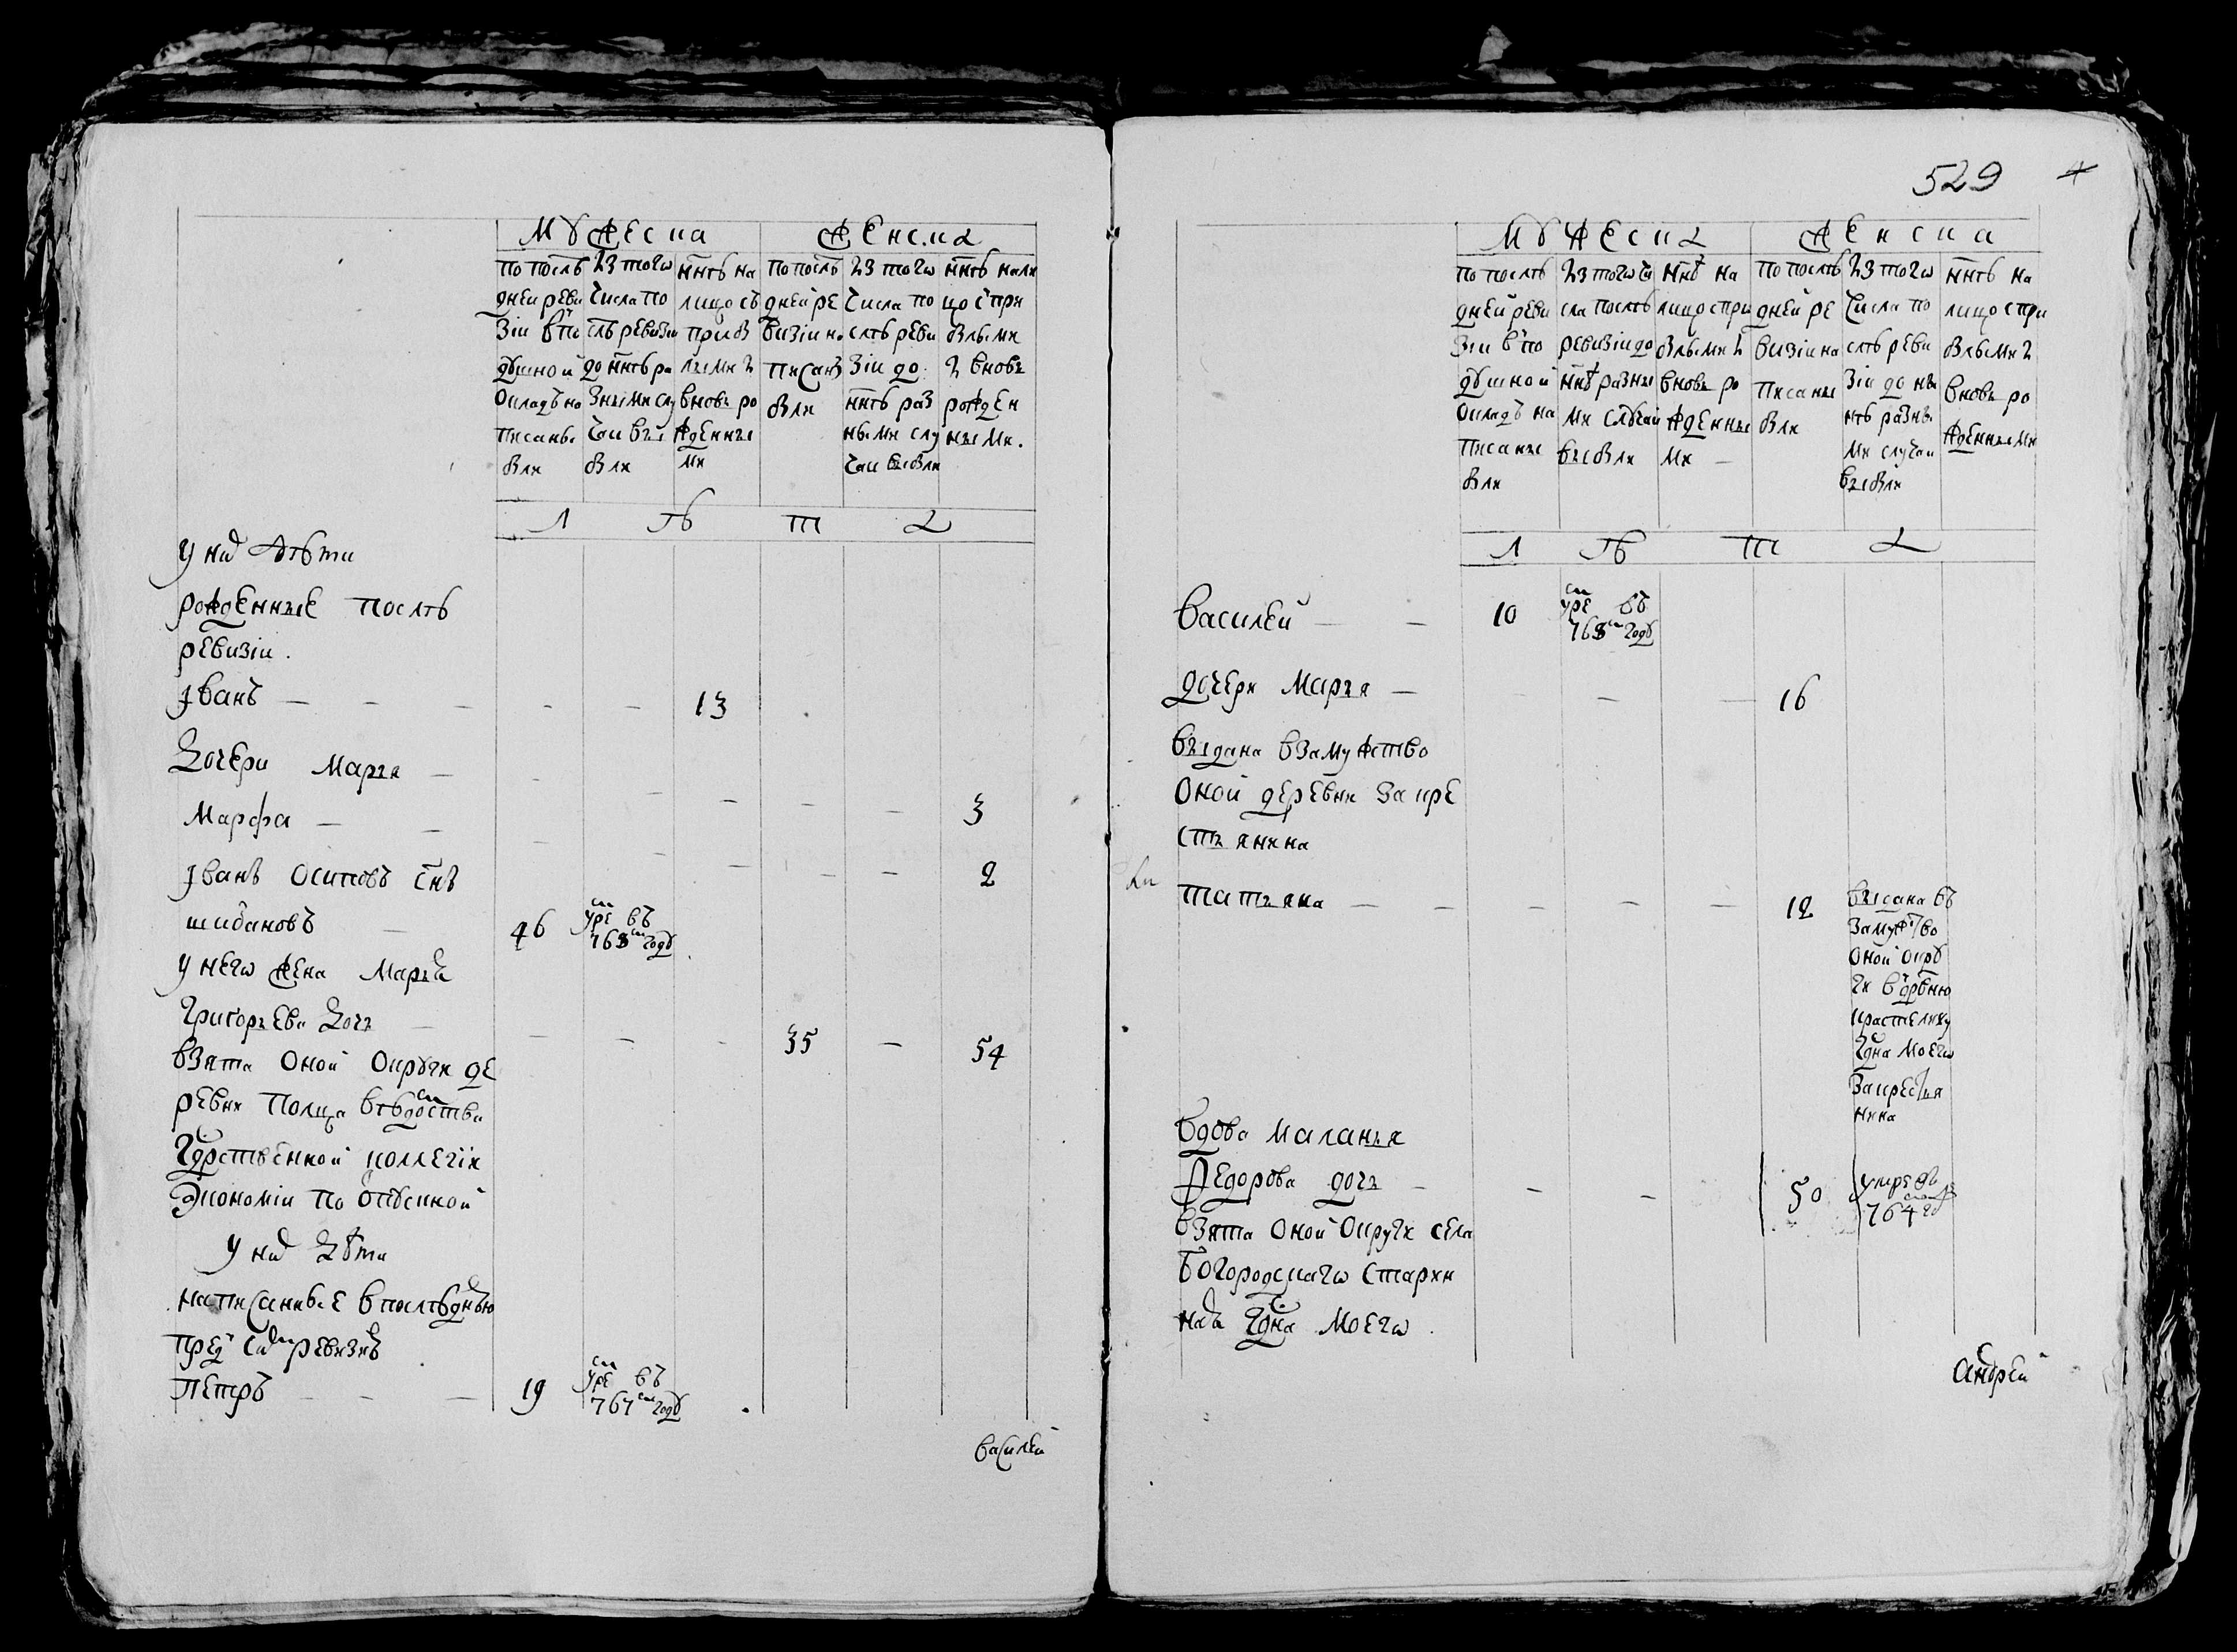 529
Мужеска
Женска
по послѣ
дней реви
зіи в по
душной
окладъ на
писаны
были
Из того
числа по
слѣ ревизіи
до ннѣ ра
зными слу
чаи вы
были
ннѣ на
лицо съ
прибы
лыми и
вновь ро
жденны
ми
по послѣ
дней ре
визіи на
писаны
были
Из того
числа по
слѣ реви
зіи до
ннѣ раз
ными слу
чаи выбыли
ннѣ нали
цо с при
былыми
и вновь
рожден
ными.
Л ѣ т а
у ни дѣти
рожденные послѣ
ревизіи.
Іванъ 13
Дочери Марья 3
Марфа 2
Іванъ Осиповъ снъ
шибановъ 46 умре въ 763м году
у него жена Марья
Григорьева дочь 35 54
взята оной округи де
ревни Полца вѣдомства
Гдрственной коллегіи
Экономіи по отпускной
у ни дѣти
написанные в послѣднюю
пред сим ревизию
Петръ 19 умре въ 767м году
Василей
Мужеска
Женска
по послѣ
дней реви
зіи в по
душной
окладъ на
писаны
были
Из того чи
сла послѣ
ревизіи до
ннѣ разны
ми случаи
выбыли
ннѣ на
лицо с при
былыми и
вновь ро
жденны
ми
по послѣ
дней ре
визіи на
писаны
были
Из того
числа по
слѣ реви
зіи до ны
нѣ разны
ми случаи
выбыли
ннѣ на
лицо с при
былыми и
вновь ро
жденными
Л ѣ т а
Василей 10 умре въ 768м году
дочери Марья 16
выдана в замужство
оной деревни за кре
стьянина
Татьяна 12
выдана въ
замужство
оной окру
ги в дрвню
крастелиху
гдна моего
за крестья
нина
вдова Маланья
Федорова дочь 50 умре въ 764 го
взята оной округи села
Богородскаго Старки
надъ гдна моего.
Андрей